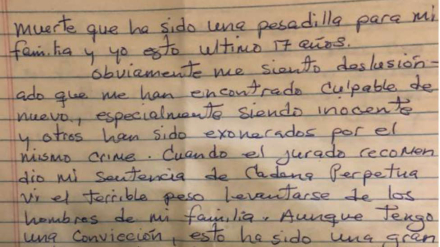 muerte que ha sido una pesadilla para mi
familia y yo esto ultimo 17 años.
Obviamente me siento deslusión-
ado que me han encontrado culpable de
nuevo, especialmente siendo inocente
y otros han sido exonerados por el
mismo crime. Cuando el jurado recomen
dio mi sentencia de Cadena Perpetua
vi el terrible peso leventarse de los
hombres de mi familia. Aunque tengo
una Convicción, esto ha sido una gran